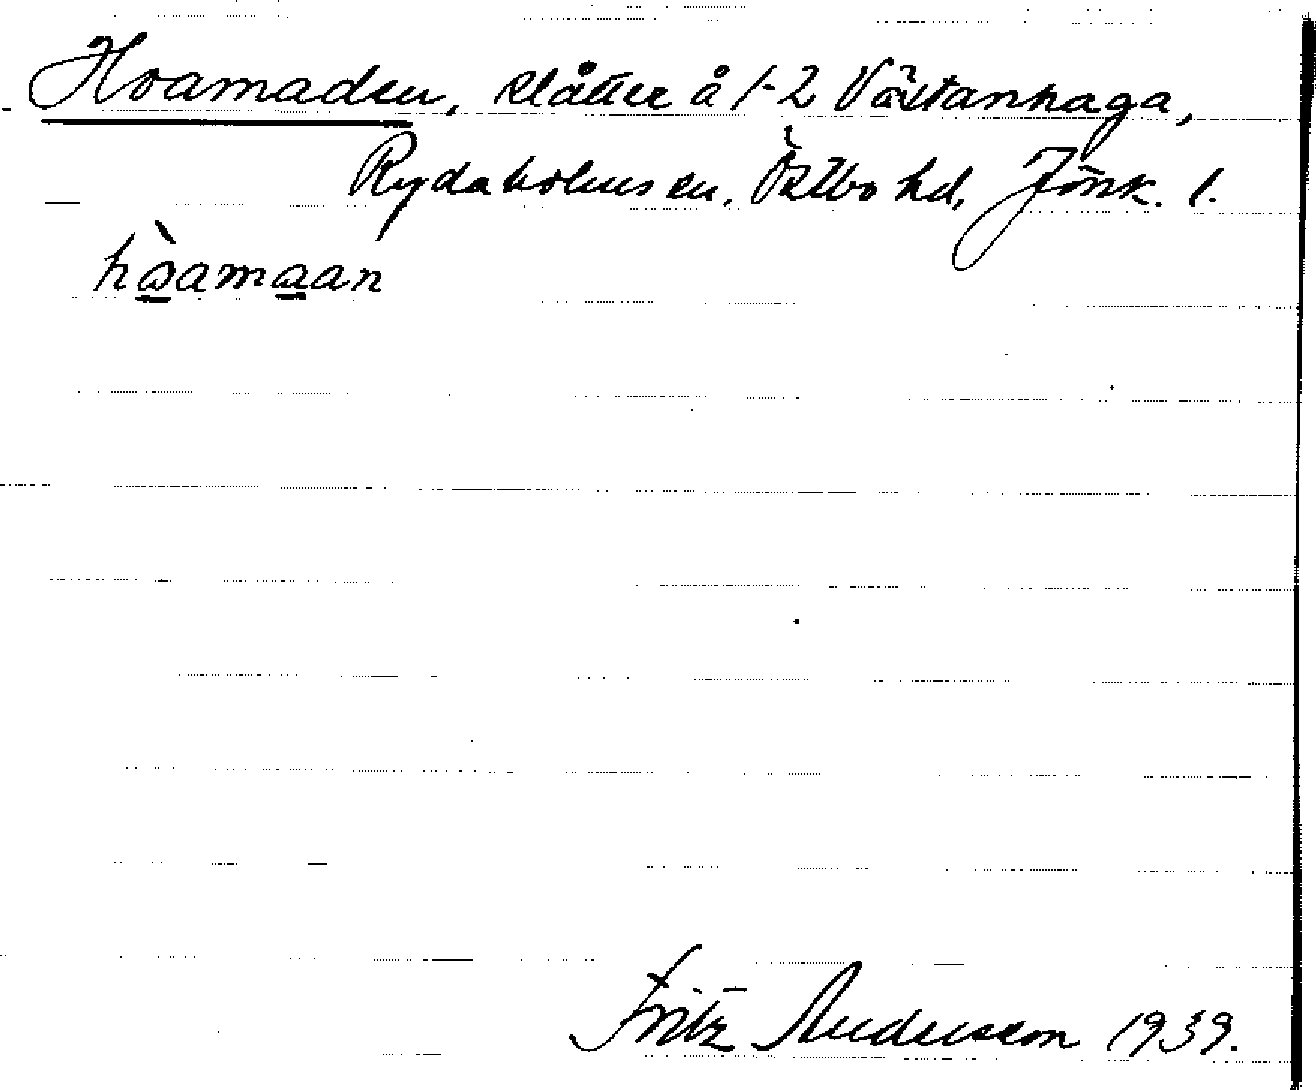 Hoamaden, slåtter å 1-2 Västanhaga,
Rydaholms sn, Östbo hd, Jönk. l.
hòamaan
Fritz Andersson 1939.